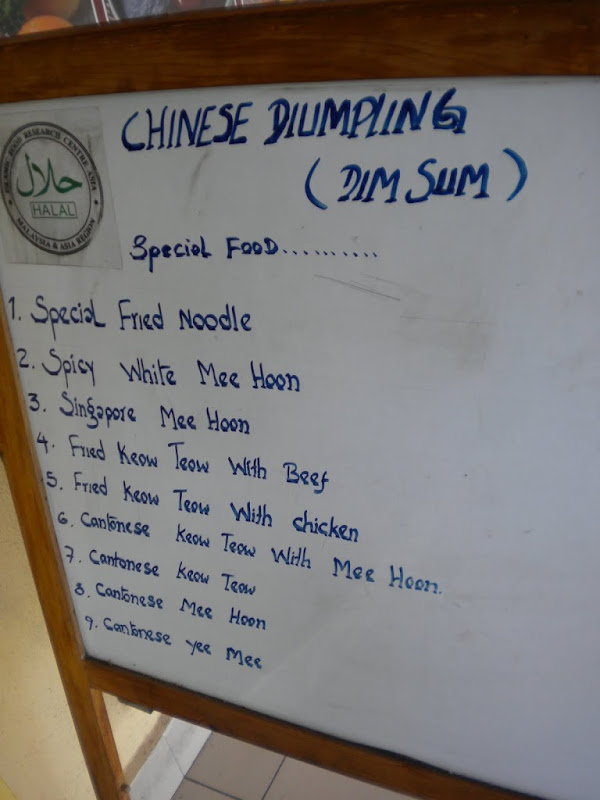 CHINESE DIUMPLING
(DIM SUM)
ISLAMIC FOOD RESEARCH CENTRE ASIA
حلال
HALAL
MALAYSIA & ASIA REGION
Special FOOD..........
1. Special Fried Noodle
2. Spicy White Mee Hoon
3. Singapore Mee Hoon
4. Fried Keow Teow With Beef
5. Fried Keow Teow With chicken
6. Cantonese Keow Teow With Mee Hoon.
7. Cantonese Keow Teow
8. Cantonese Mee Hoon
9. Cantonese yee Mee